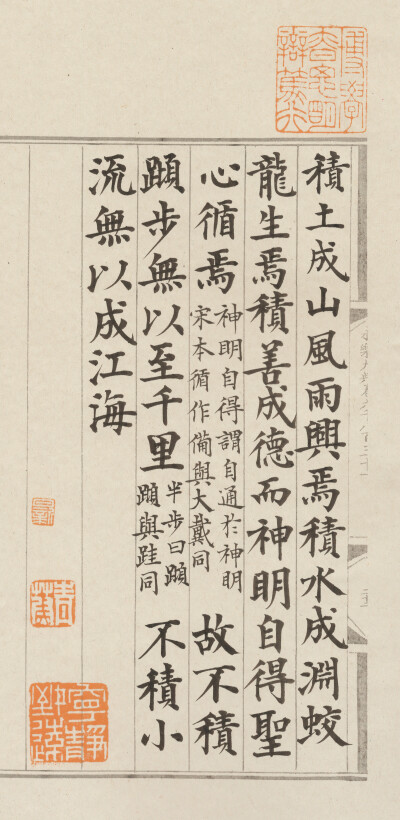 積土成山風雨興焉積水成淵蛟
龍生焉積善成德而神明自得聖
心循焉
神明自得謂自通於神明
宋本循作備與大戴同
故不積
蹞步無以至千里
半步曰蹞
蹞與跬同
不積小
流無以成江海
寧靜
致遠